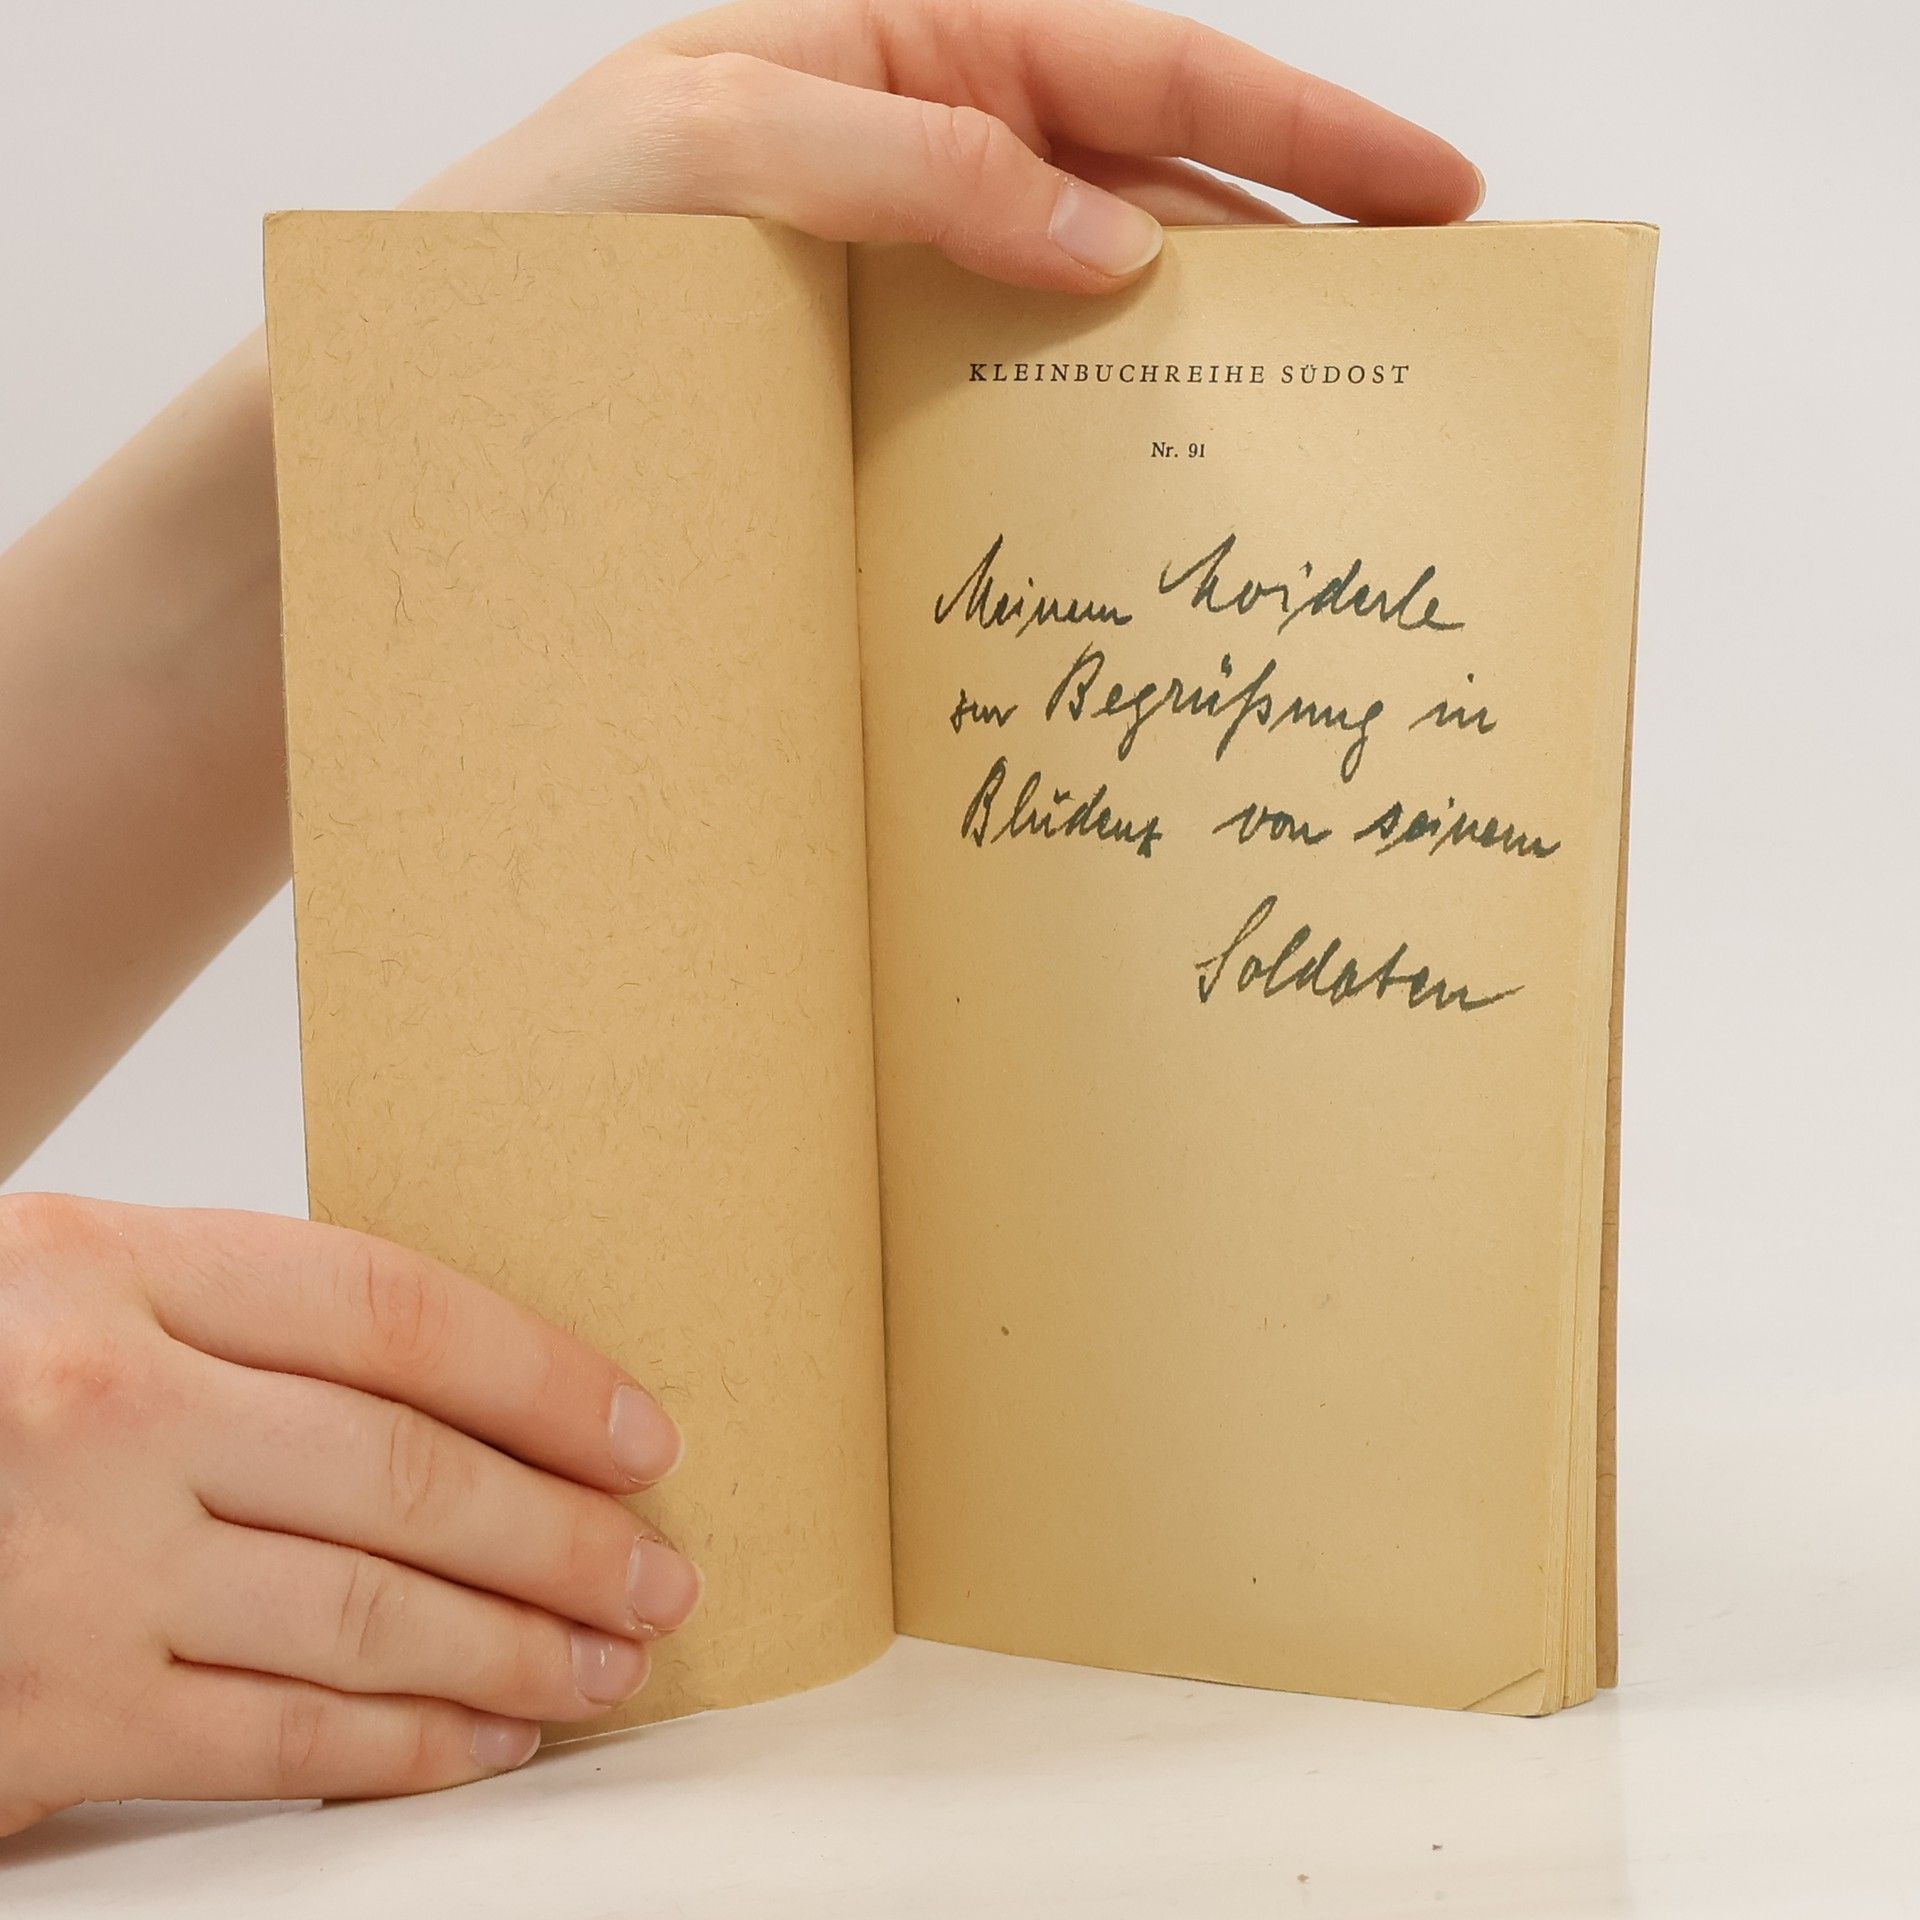 KLEINBUCHREIHE SÜDOST
Nr. 91
Meinem Moiderle
zur Begrüßung in
Blŭdenz von seinem
Soldaten